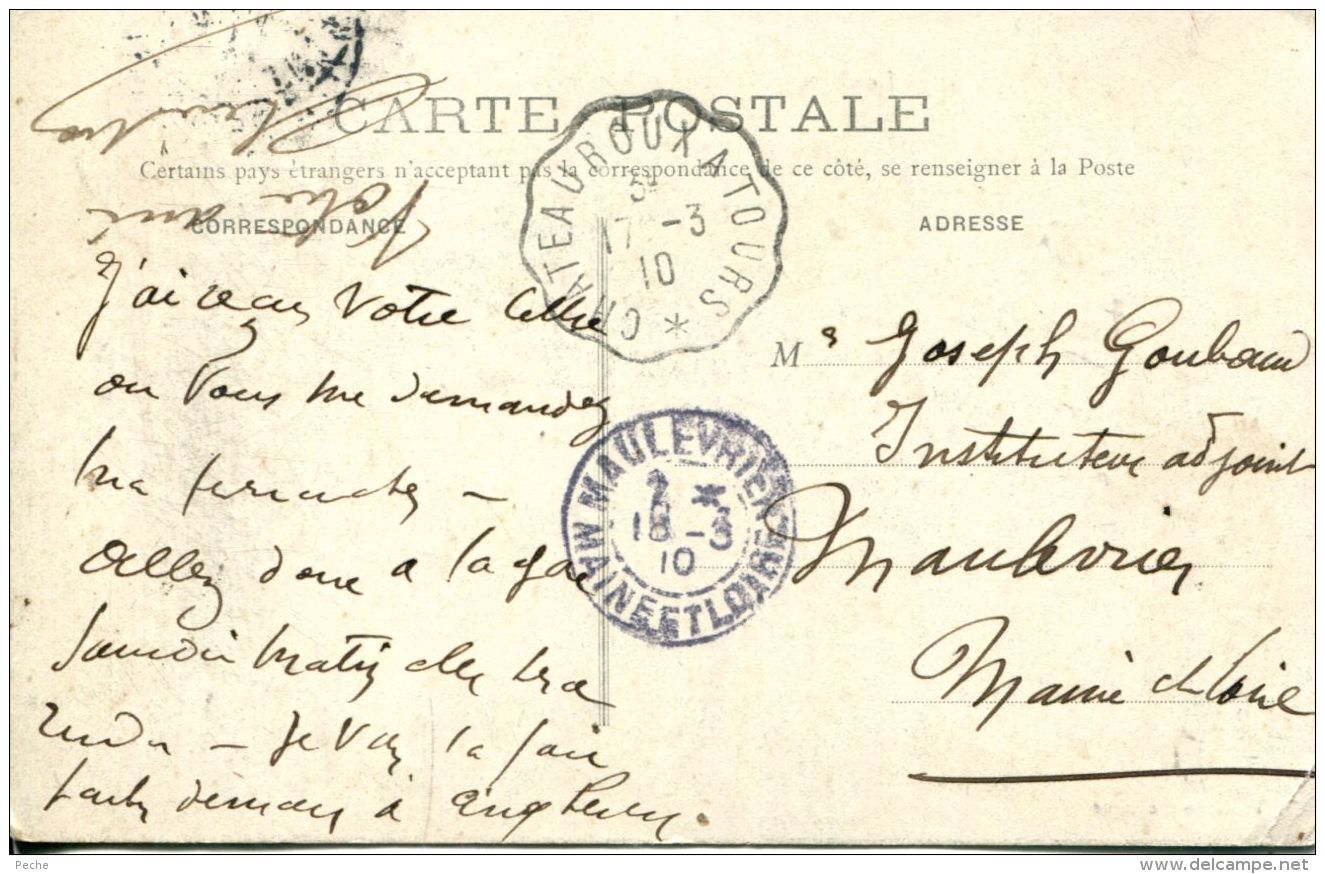 CARTE POSTALE
Certains pays étrangers n'acceptant pas la correspondance de ce côté, se renseigner à la Poste
CORRESPONDANCE
ADRESSE
Votre ami
CHATEAUROUX A TOURS *
17 -3
10
J'ai reçu votre lettre
ou vous me demandez
ma
allez donc a la gare
samedi matin elle
rendu - je vais la faire
partir demain à
Mr Joseph Goubaud
Instituteur adjoint
Maulevrier
Maine et Loire
MAULEVRIER
2 *
18 -3
10
MAINE ET LOIRE
Peche
www.delcampe.net